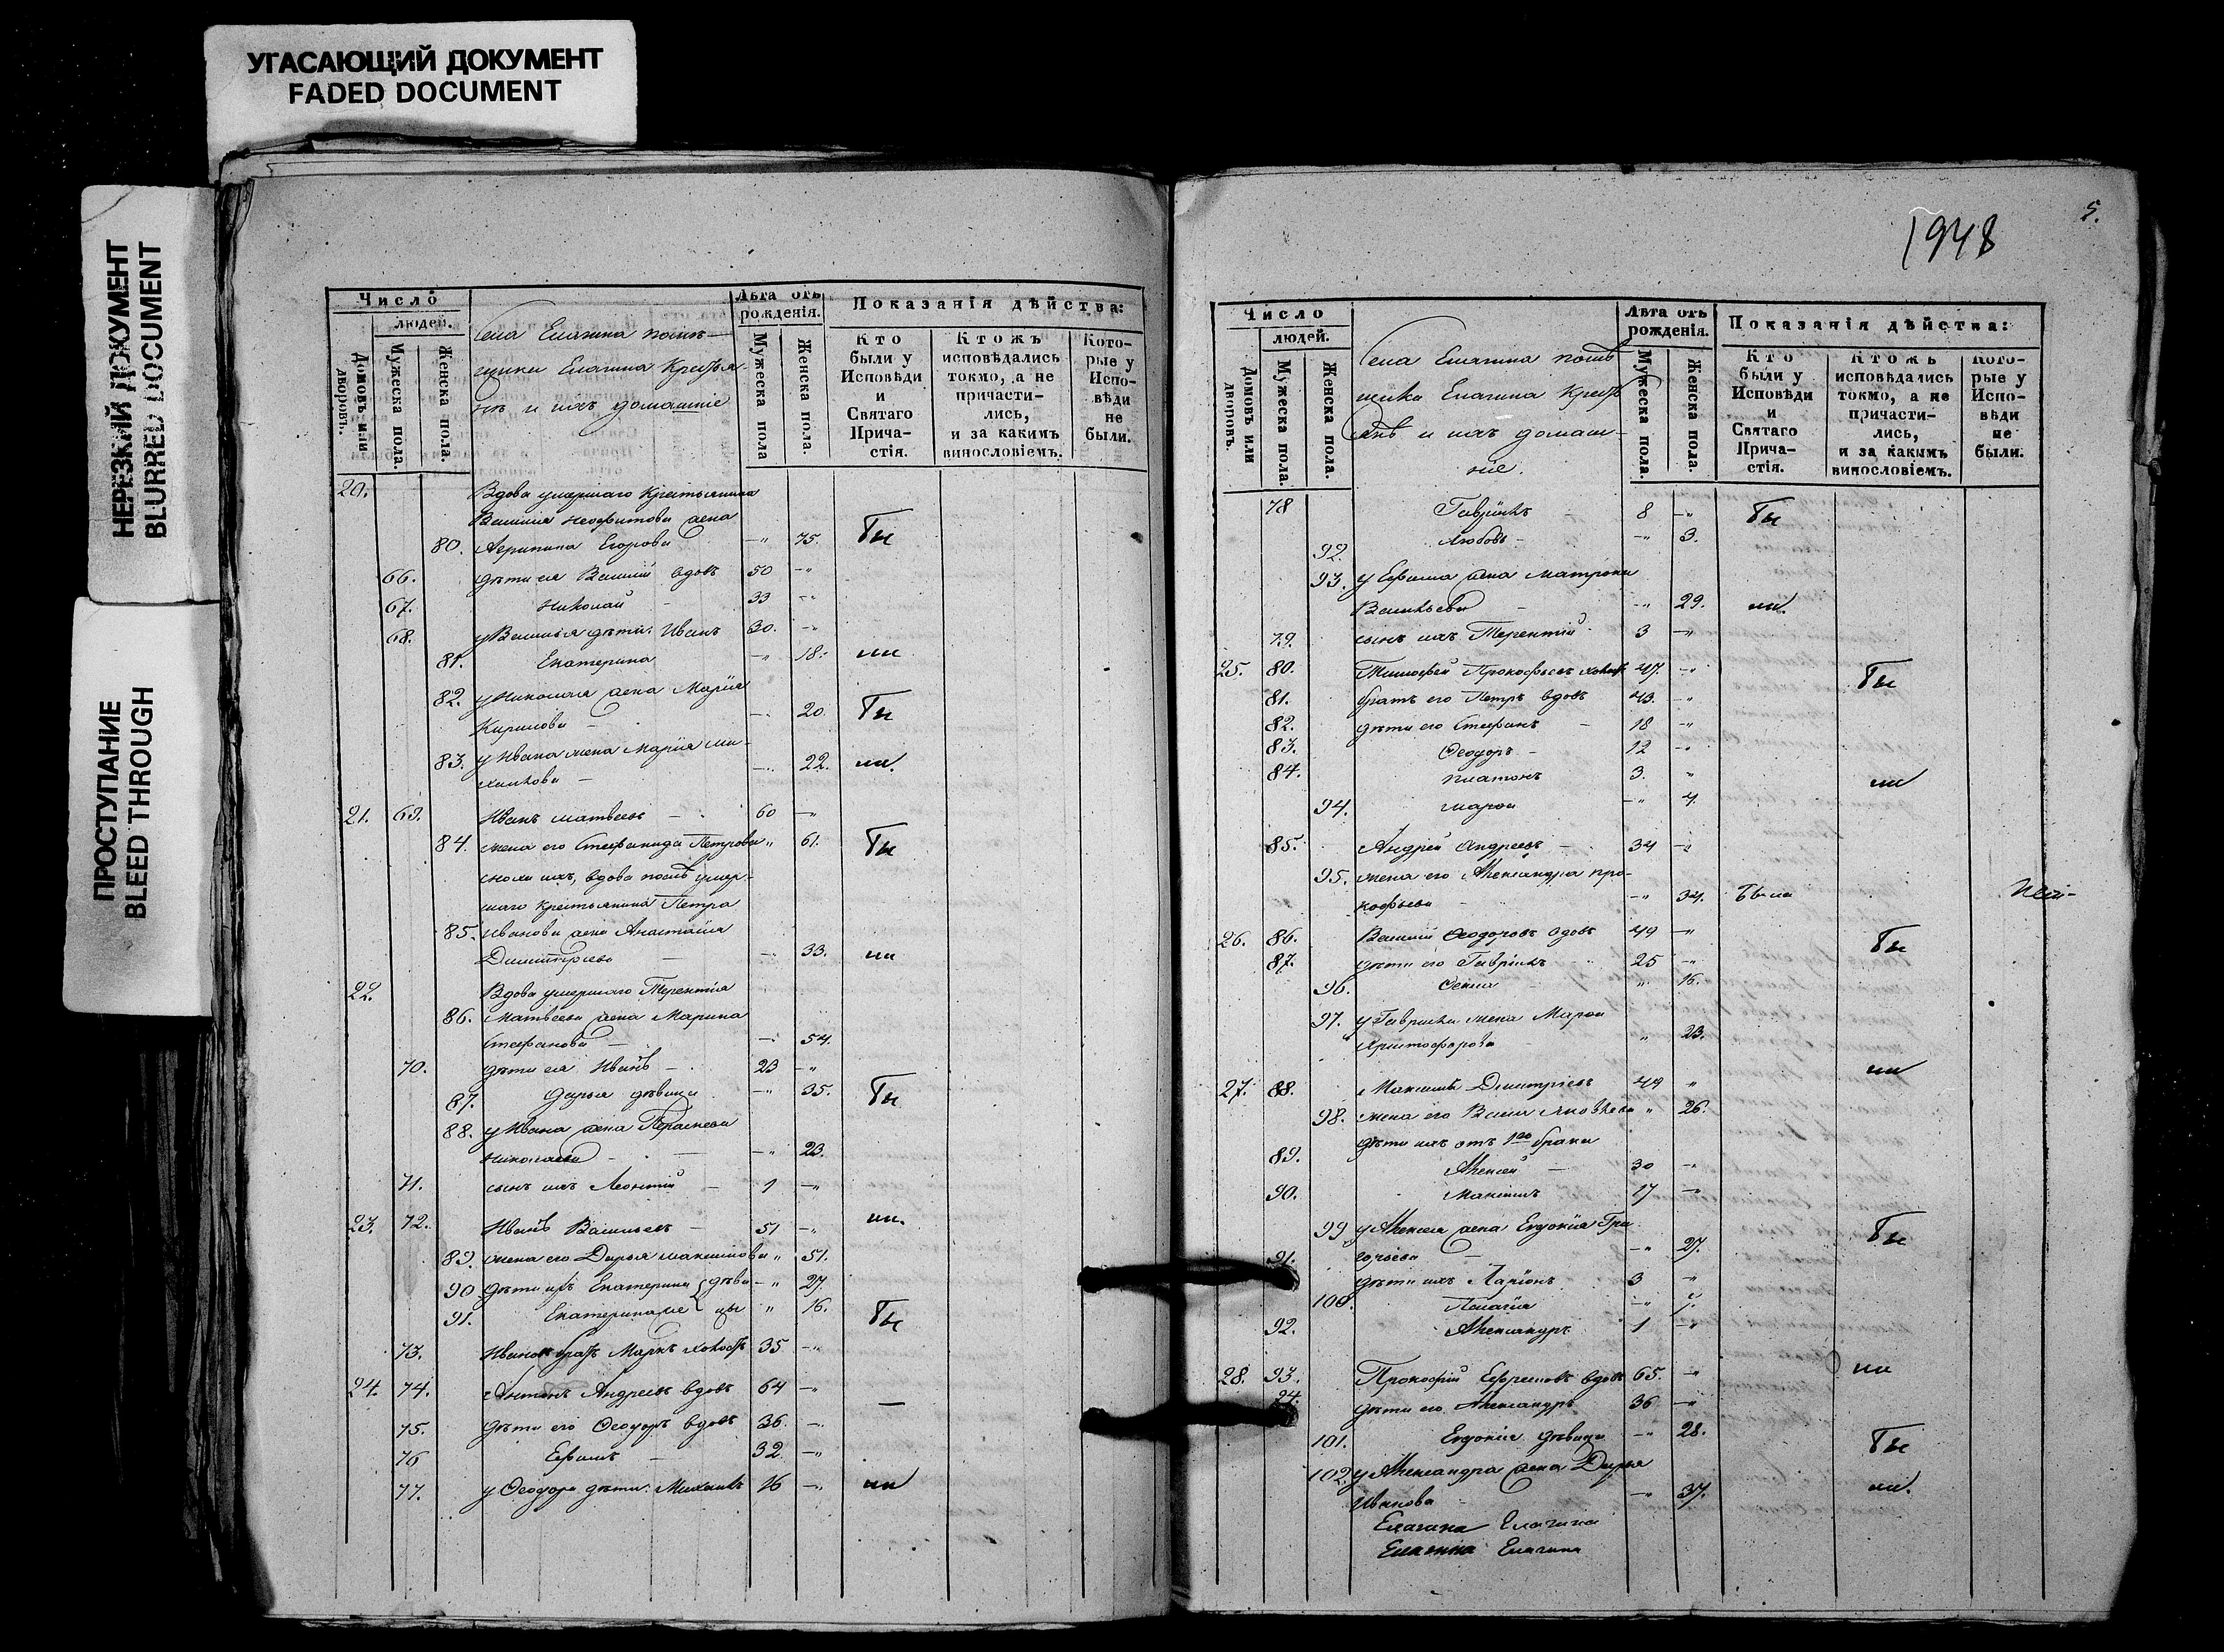 УГАСАЮЩИЙ ДОКУМЕНТ
FADED DOCUMENT
НЕРЕЗКИЙ ДОКУМЕНТ
BLURRED DOCUMENT
ПРОСТУПАНИЕ
BLEED THROUGH
Число
людей.
Домовъ или дворовъ.
Мужеска пола.
Женска пола.
Села Елагина помѣ-
щика Елагина Крестья-
нѣ и ихъ домашніе
Лѣта отъ рожденія.
Мужеска пола
Женска пола.
Показанія дѣйства:
Кто были у Исповѣди и Святаго Прича-стія.
Кто жъ исповѣдались токмо, а не причасти-лись, и за какимъ винословіемъ.
Кото-рые у Испо-вѣди не были.
20. Вдова умершаго крестьянина
Василія Неофитова жена
80. Агрипина Егорова —" 75. Бы
66. дѣти ея Василій вдовъ 50 —"
67. Николай 33 —"
68. у Василья дѣти: Иванъ 30. —"
81. Екатерина —" 18. ли
82. у Николая жена Марія
Кирилова — 20. Бы
83. у Ивана жена Марія Ми-
хайлова — 22. ли.
21. 69. Иванъ Матвеевъ 60 —"
84. жена его Стефанида Петрова " 61. Бы
сноха ихъ, вдова послѣ умер-
шаго крестьянина Петра
85. Иванова жена Анастасія
Димитріева — 33. ли
22. Вдова умершаго Терентія
86. Матвеева жена Марина
Стефанова — 54.
70. дѣти ея Иванъ — 23 —"
87. Дарья дѣвица —" 35. Бы
88. у Ивана жена Параскева
Николаева — —" 23.
71. сынъ ихъ Леонтій — 1 —"
23. 72. Иванъ Васильевъ — 51 —" ли.
89. жена его Дарья Максимова " 51.
90 дѣти ихъ Екатерина { дѣви —" 27.
91. Екатерина же { цы " 16. Бы
73. Ивановъ братъ Маркъ холостъ 35 —"
24. 74. Антонъ Андреевъ вдовъ 64 —" —
75. дѣти его Ѳеодоръ вдовъ 36. —
76 Ефимъ — 32 —"
77. у Ѳеодора дѣти: Михаилъ 16 —" ли
5.
1948
Число
людей.
Домовъ или дворовъ.
Мужеска пола.
Женска пола.
Села Елагина помѣ
щика Елагина Крест
янѣ и ихъ домаш-
ніе.
Лѣта отъ рожденія.
Мужеска пола.
Женска пола.
Показанія дѣйства:
Кто были у Исповѣди и Святаго Прича-стія.
Кто жъ исповѣдались токмо, а не причасти-лись, и за какимъ винословіемъ.
Кото-рые у Испо-вѣди не были.
78 Гавріилъ 8 —" Бы
92. Любовь —" 3.
93. у Ефима жена Матрона
Васильева — —" 29. ли.
79. сынъ ихъ Терентій 3 —"
25. 80. Тимофей Прокофьевъ холостъ 47. —" Бы
81. братъ его Петръ вдовъ 43. —"
82. дѣти его Стефанъ — 18 —"
83. Ѳеодоръ — 12 —"
84. Платонъ 3. " ли
94. Марѳа —" 7.
85. Андрей Андреевъ — 34 —"
95. жена его Александра Про-
кофьева —" 34. Была
26. 86. Василій Ѳеодоровъ вдовъ 49 —" Бы
87. дѣти его Гавріилъ 25 —"
96. " 16.
97. у Гавріила жена Марѳа
Христофорова " 23.
27. 88. Максимъ Димитріевъ 49 " ли
98. жена его Васса Яковлева " 26.
89. дѣти ихъ отъ 1го брака
Алексей — 30 —"
90. Максимъ 17 —"
99 у Алексея жена Евдокія Гри-
91. горьева —" 27. Бы
дѣти ихъ Ларіонъ 3 —"
100. Пелагія —"
92. Александръ 1 —"
28. 93. Прокофій Ефремовъ вдовъ 65. —" ли
94. дѣти его Александръ 36 —"
101. Евдокія дѣвица —" 28. Бы
102. у Александра жена Дарья
Иванова —" 37. ли.
Елагина Елагина
Елагина Елагина